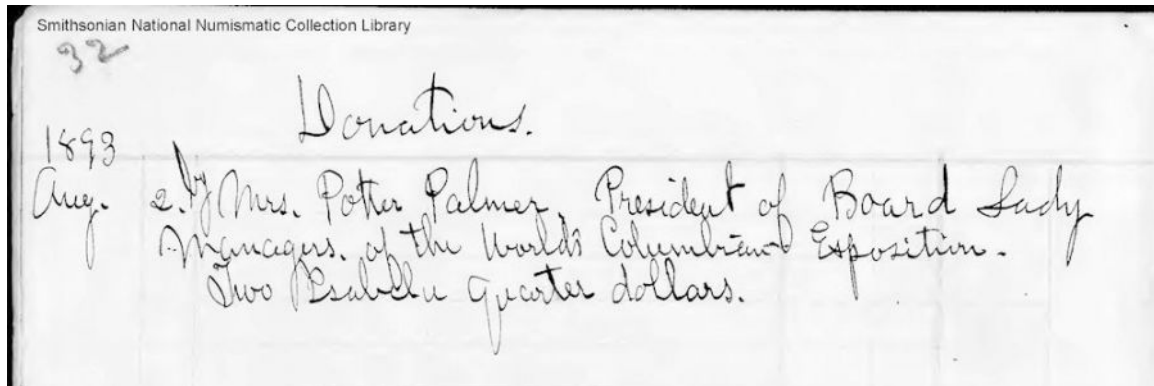 Smithsonian National Numismatic Collection Library
32
Donations.
1893
Aug. 2. by Mrs. Potter Palmer, President of Board Lady
Managers. of the World's Columbian Exposition.
Two Isabella quarter dollars.